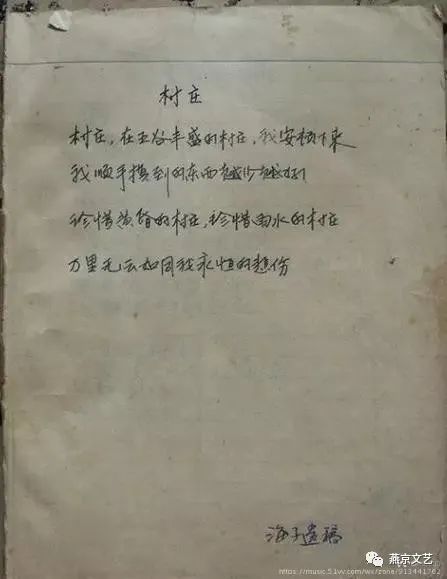 村庄
村庄，在五谷丰盛的村庄，我安顿下来
我顺手摸到的东西越少越好！
珍惜黄昏的村庄，珍惜雨水的村庄
万里无云如同我永恒的悲伤
海子遗稿
燕京文艺
https://music.51vv.com/wx/zone/913441762